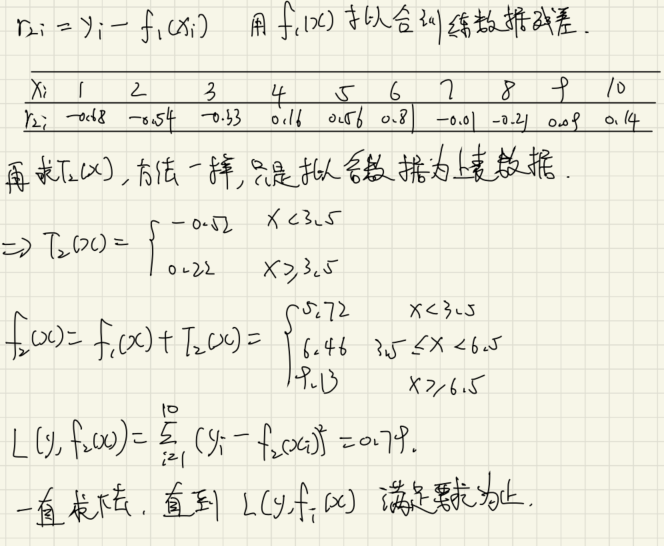 r₂ᵢ = yᵢ - f₁(xᵢ) 用 f₁(x) 拟合训练数据残差.
xᵢ 1 2 3 4 5 6 7 8 9 10
r₂ᵢ -0.68 -0.54 -0.33 0.16 0.56 0.81 -0.01 -0.21 0.09 0.14
再求T₂(x), 方法一样, 只是拟合数据为上表数据.
⇒ T₂(x) = { -0.52 x < 3.5
0.22 x ≥ 3.5
f₂(x) = f₁(x) + T₂(x) = { 5.72 x < 3.5
6.46 3.5 ≤ x < 6.5
9.13 x ≥ 6.5
L(y, f₂(x)) = Σᵢ₌₁¹⁰ (yᵢ - f₂(xᵢ))² = 0.79.
一直求下去, 直到 L(y, fᵢ(x) 满足要求为止.